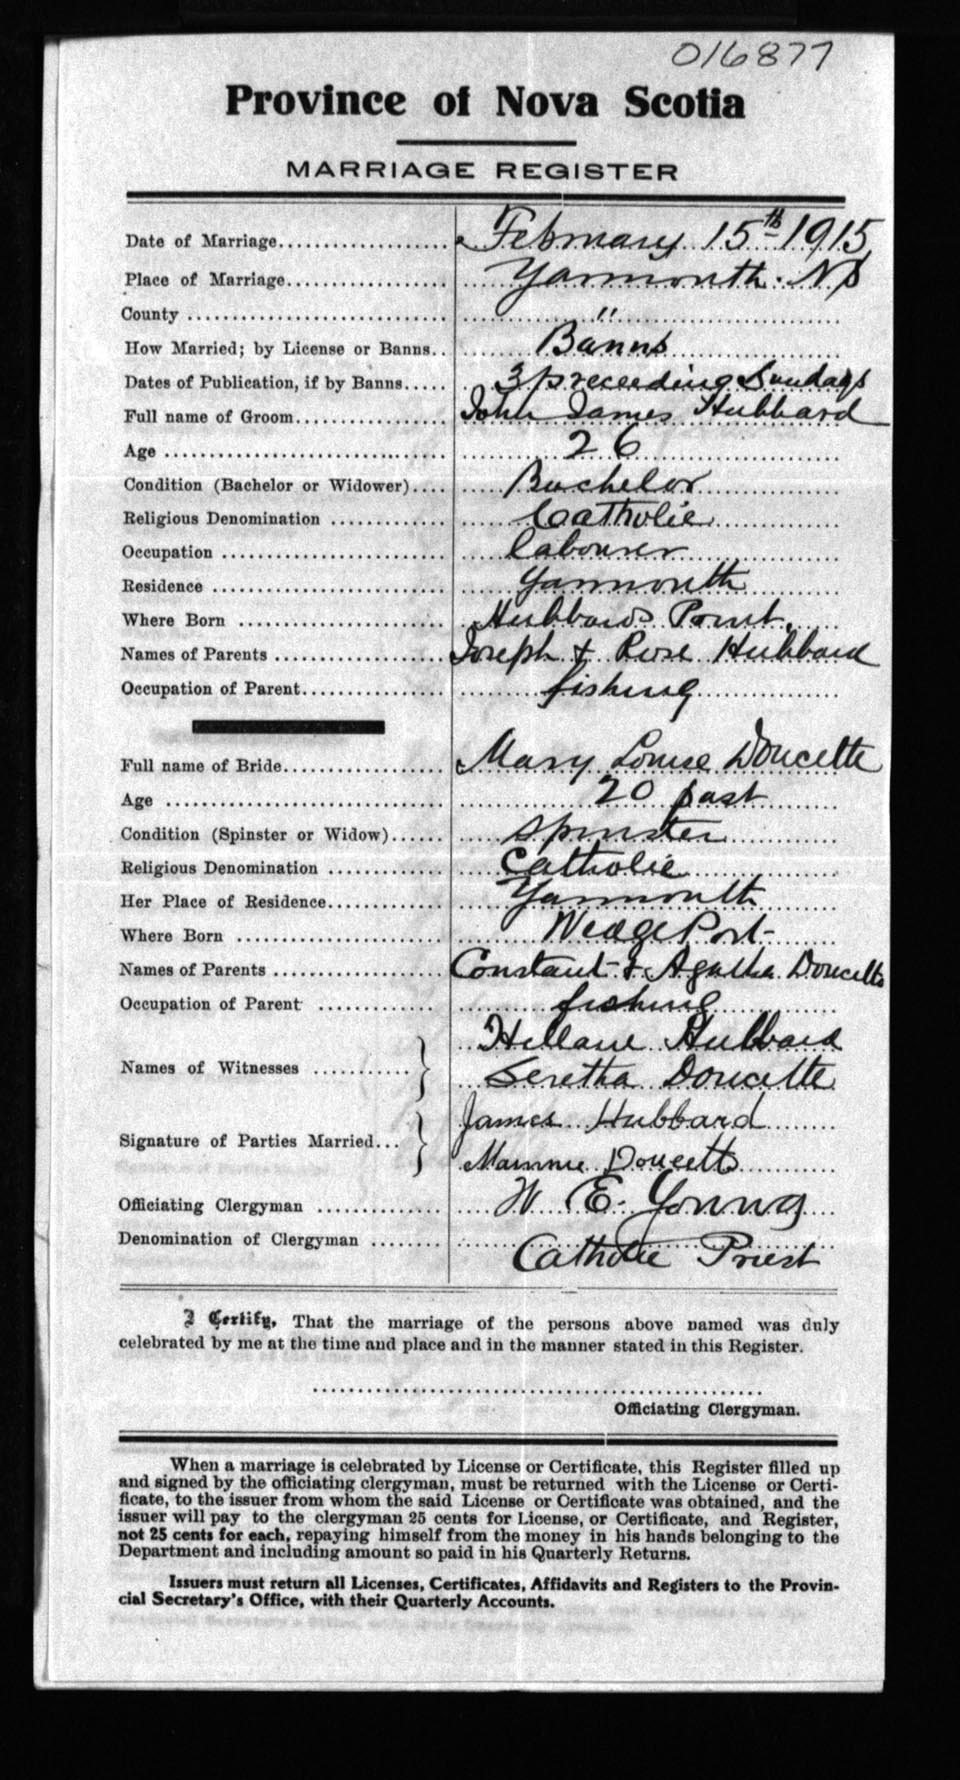 016877
Province of Nova Scotia
MARRIAGE REGISTER
Date of Marriage February 15th 1915
Place of Marriage Yarmouth. NS
County "
How Married; by License or Banns Banns
Dates of Publication, if by Banns 3 preceeding Sundays
Full name of Groom John James Hubbard
Age 26
Condition (Bachelor or Widower) Bachelor
Religious Denomination Catholic
Occupation labourer
Residence Yarmouth
Where Born Hubbards Point.
Names of Parents Joseph & Rose Hubbard
Occupation of Parent fishing
Full name of Bride Mary Louise Doucette
Age 20 past
Condition (Spinster or Widow) Spinster
Religious Denomination Catholic
Her Place of Residence Yarmouth
Where Born Wedge Port
Names of Parents Constant & Agatha Doucette
Occupation of Parent fishing
Names of Witnesses Hubbard
Doucette
Signature of Parties Married James Hubbard
Mammie Doucette
Officiating Clergyman W E. Young
Denomination of Clergyman Catholic Priest
I Certify, That the marriage of the persons above named was duly
celebrated by me at the time and place and in the manner stated in this Register.
Officiating Clergyman.
When a marriage is celebrated by License or Certificate, this Register filled up
and signed by the officiating clergyman, must be returned with the License or Certi-
ficate, to the issuer from whom the said License or Certificate was obtained, and the
issuer will pay to the clergyman 25 cents for License, or Certificate, and Register,
not 25 cents for each, repaying himself from the money in his hands belonging to the
Department and including amount so paid in his Quarterly Returns.
Issuers must return all Licenses, Certificates, Affidavits and Registers to the Provin-
cial Secretary's Office, with their Quarterly Accounts.